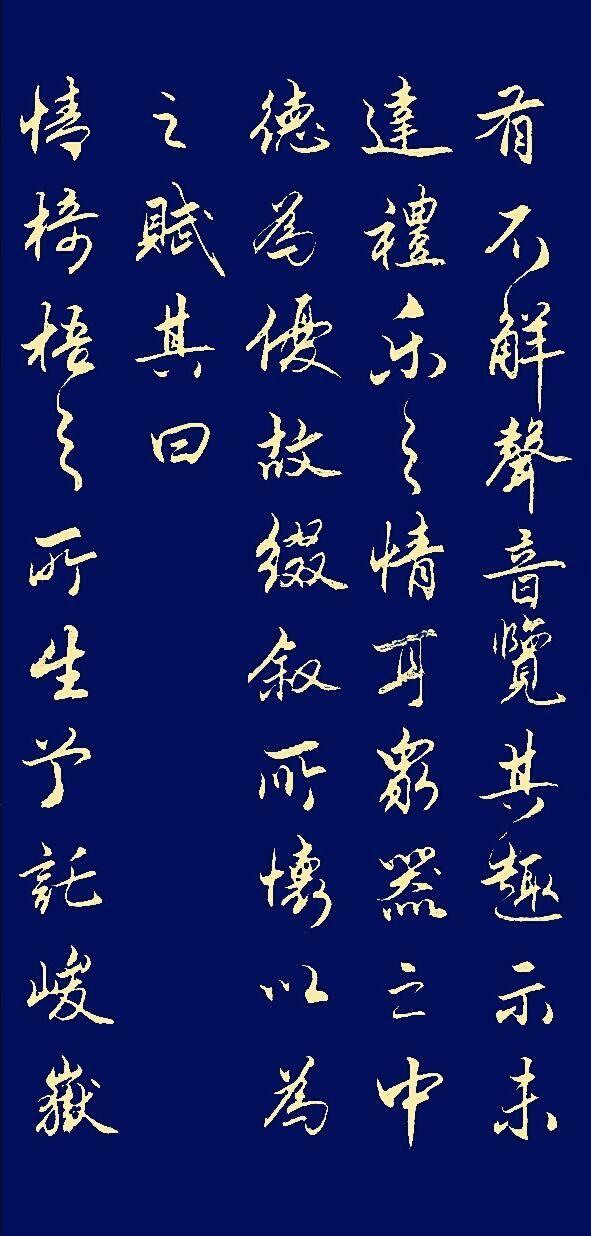 有不解聲音覽其趣示未
達禮乐之情耳眾器之中
德為優故綴叙所懷以為
之賦其曰
情椅梧之所生兮託峻嶽